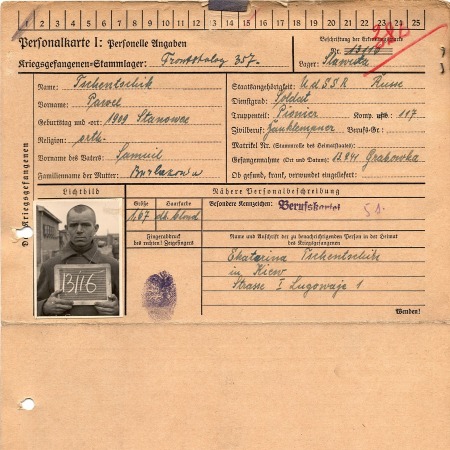 1 2 3 4 5 6 7 8 9 10 11 12 13 14 15 16 17 18 19 20 21 22 23 24 25
Personalkarte I: Personelle Angaben
Kriegsgefangenen-Stammlager: Frontstalag 357.
Beschriftung der Erkennungsmarke
Nr. 13116
Lager:
Des Kriegsgefangenen
Name: Tschentschik
Vorname: Pawel
Geburtstag und -ort: 1909 Stanowce
Religion: orth.
Vorname des Vaters: Samuil
Familienname der Mutter:
Staatsangehörigkeit: UdSSR Russe
Dienstgrad: Soldat
Truppenteil: Pionier Komp. usw.: 107
Zivilberuf: Bauklempner Berufs-Gr.:
Matrikel Nr. (Stammrolle des Heimatstaates):
Gefangennahme (Ort und Datum): Grakowka
Ob gesund, krank, verwundet eingeliefert:
Lichtbild
Nähere Personalbeschreibung
Größe Haarfarbe
1,67 dkl. blond
Besondere Kennzeichen: Berufskartei 51.
Fingerabdruck
des rechten! Zeigefingers
Name und Anschrift der zu benachrichtigenden Person in der Heimat
des Kriegsgefangenen
Ekaterina Tschentschik
in Kiew
Strasse I Lugowaja 1
Wenden!
13116